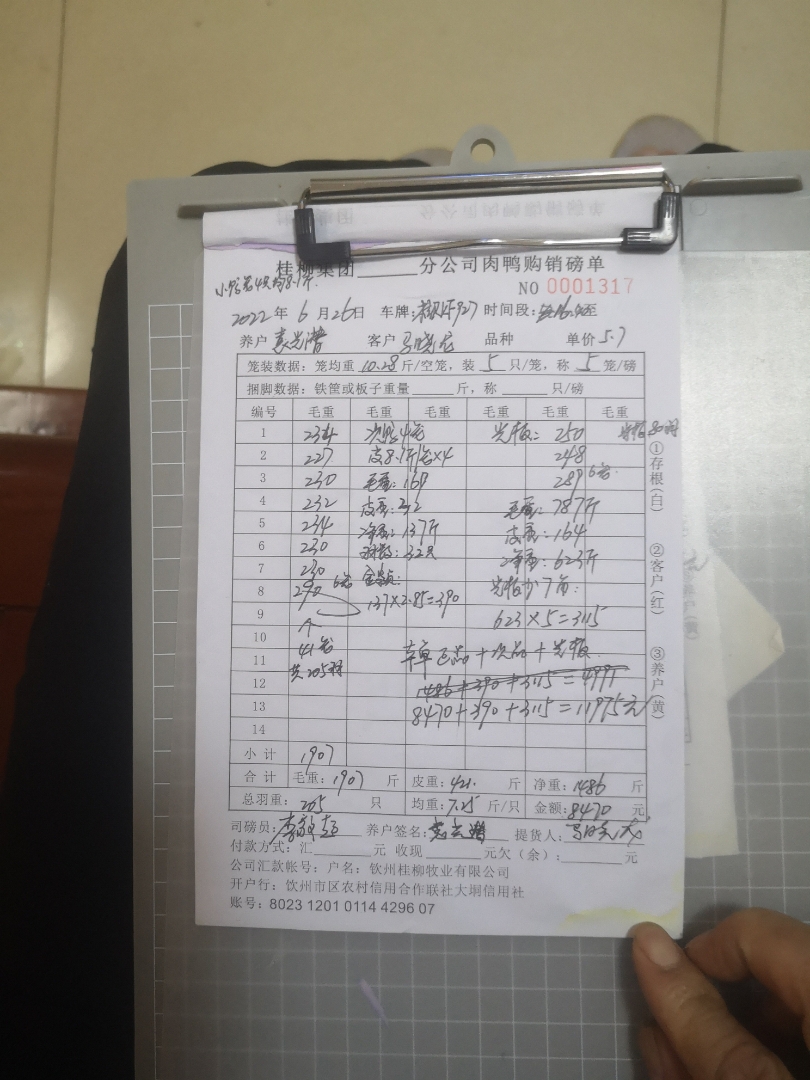 桂柳集团______分公司肉鸭购销磅单
NO 0001317
2022 年 6 月 26 日 车牌: 927 时间段: 至
养户 客户 马晓 品种 单价 5.7
笼装数据: 笼均重 10.28 斤/空笼, 装 5 只/笼, 称 5 笼/磅
捆脚数据: 铁筐或板子重量______斤, 称______只/磅
编号 毛重 毛重 毛重 毛重 毛重 毛重
1 234 次品4笼 光板: 250
2 227 皮8.1斤/笼×4 248
3 230 毛重: 169 289 6笼
4 232 皮重: 32 毛重: 787斤
5 234 净重: 137斤 皮重: 164
6 230 羽数: 32只 净重: 623斤
7 230 金额:
8 290 6笼 137×2.85=390 光板少7角:
9 623×5=3115
10
11 41笼 正品+次品+光板
12 共205羽 1486+390+3115=4991
13 8470+390+3115=11975元
14
小计 1907
合计 毛重: 1907 斤 皮重: 421. 斤 净重: 1486 斤
总羽重: 205 只 均重: 7.25 斤/只 金额: 8470 元
司磅员: 养户签名: 提货人:
付款方式: 汇______元 收现______元欠(余):______元
公司汇款帐号: 户名: 钦州桂柳牧业有限公司
开户行: 钦州市区农村信用合作联社大垌信用社
账号: 8023 1201 0114 4296 07
①存根(白)
②客户(红)
③养户(黄)